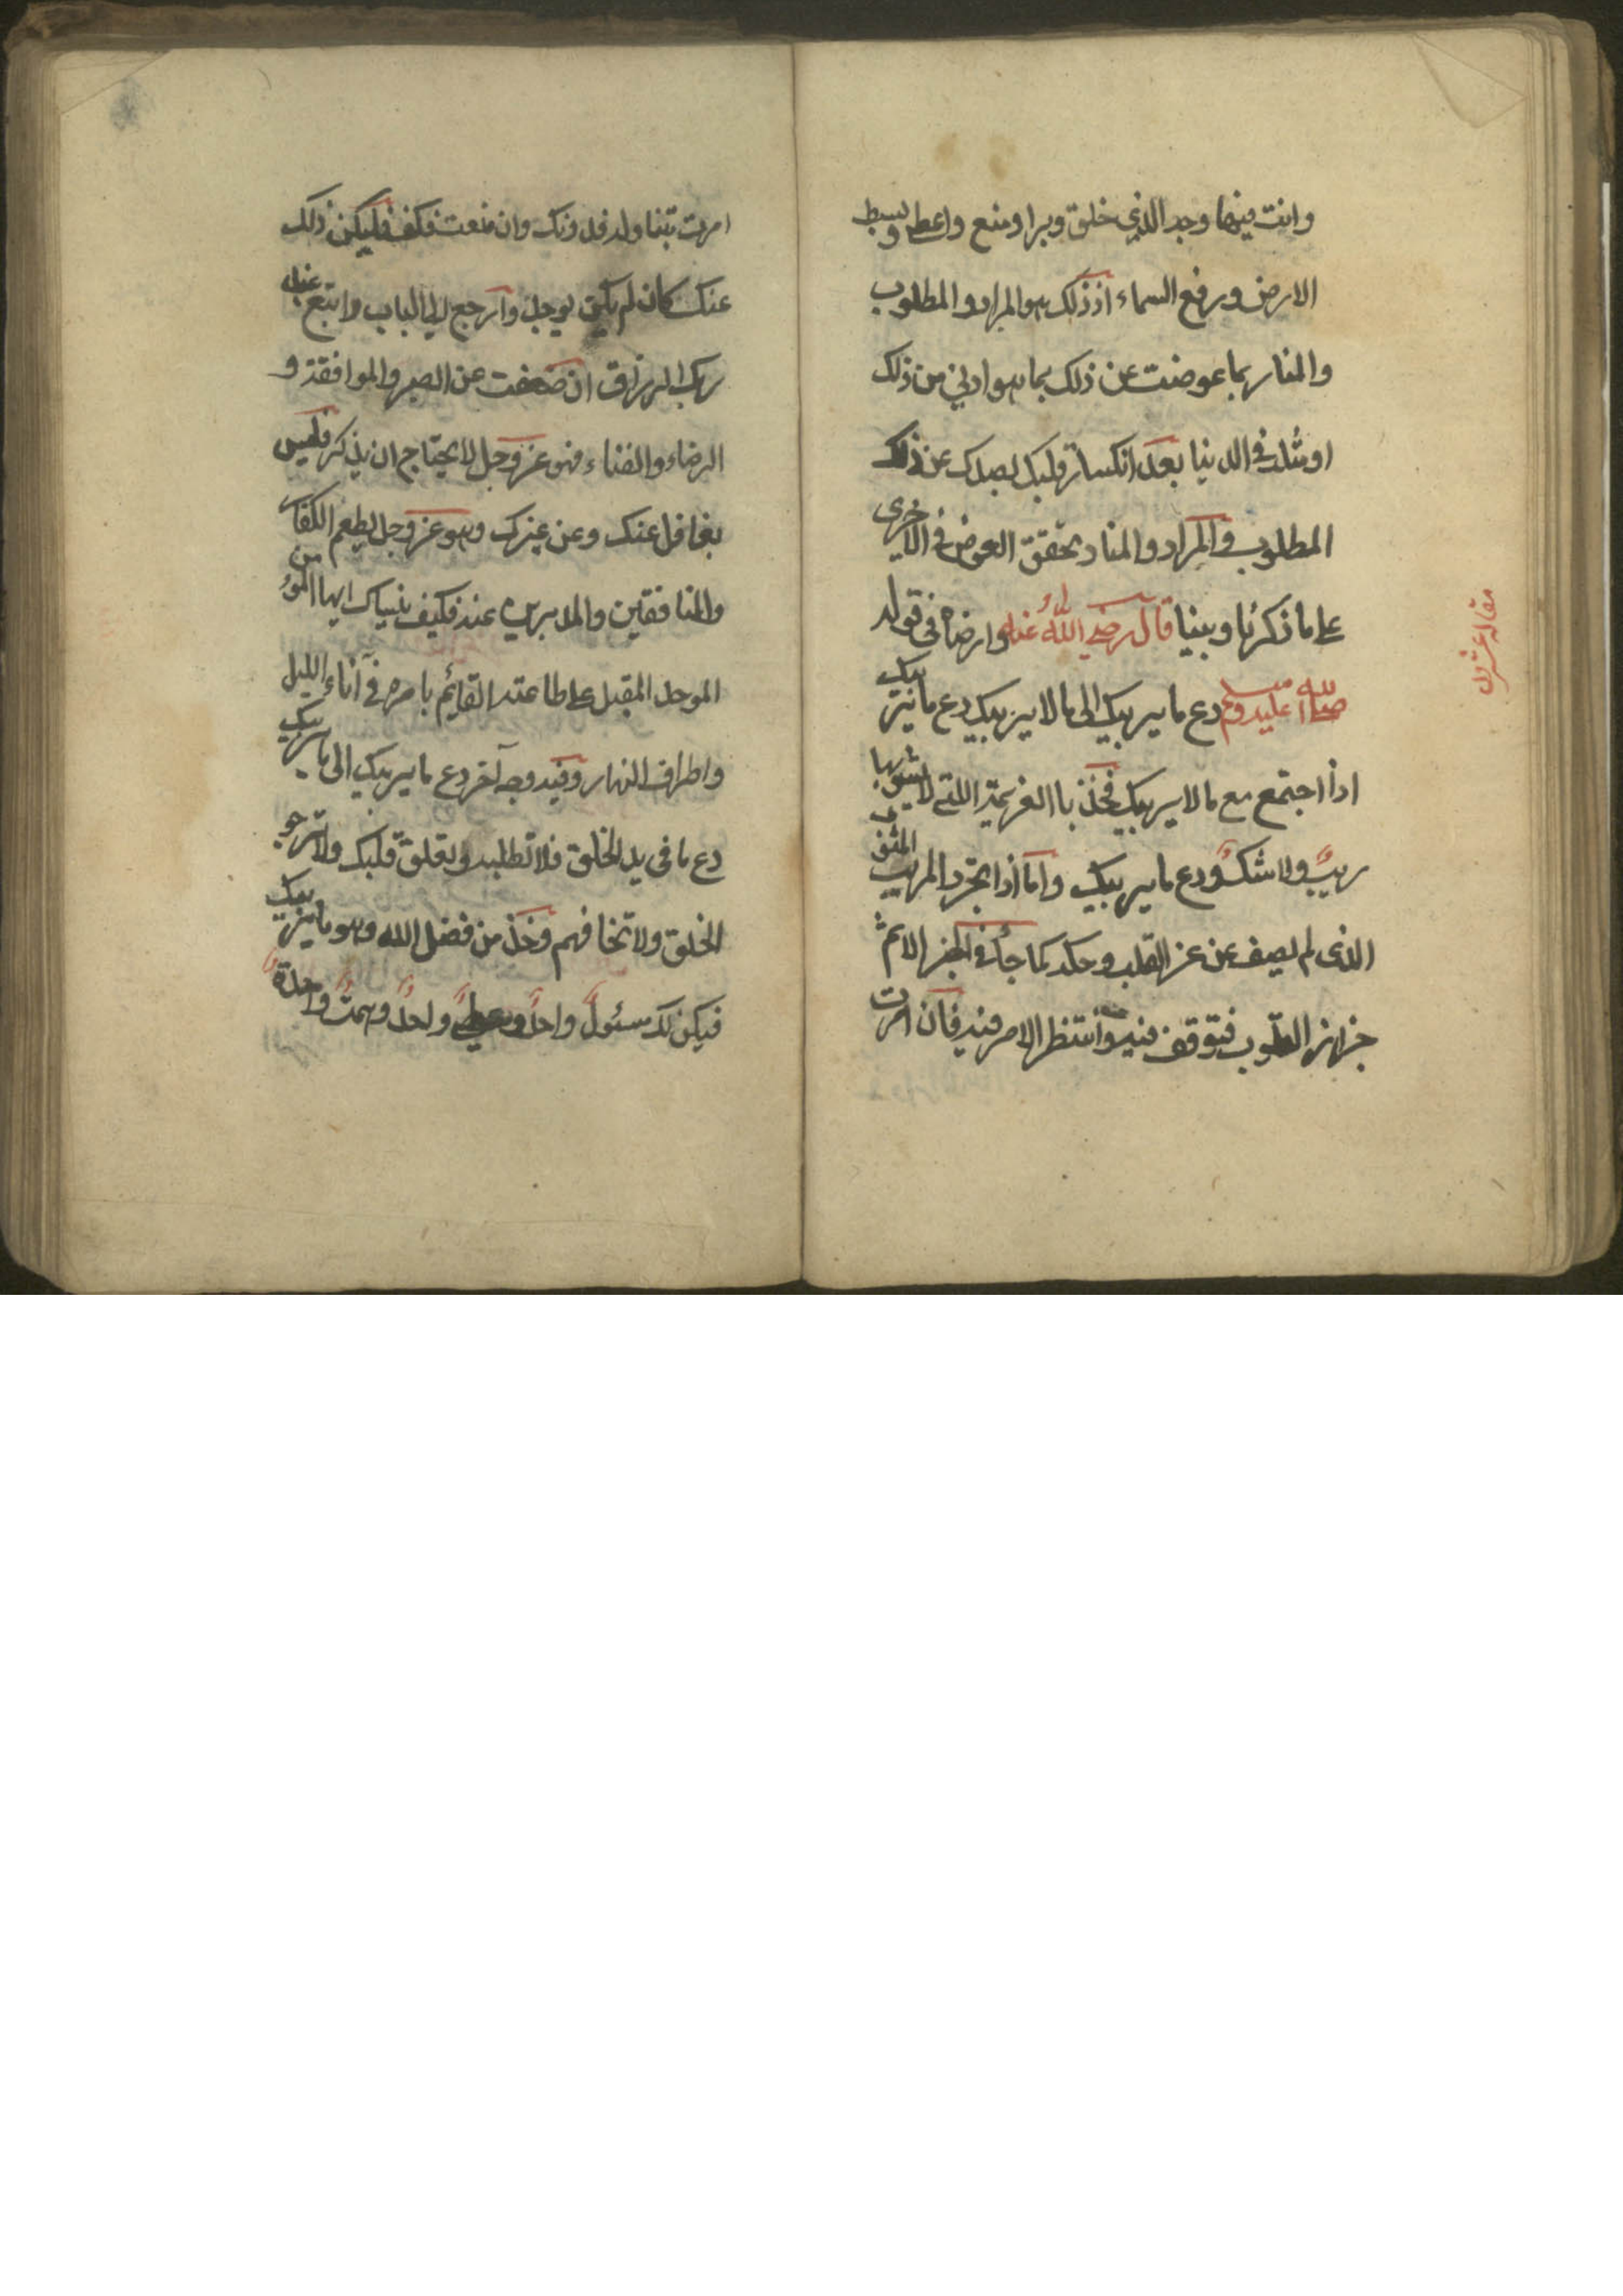 وانت فيها وجه الذي خلق وبرا ومنع واعطا وبسط
الارض ورفع السماء اذ ذلك هو المراد والمطلوب
والمنا ربما عوضت عن ذلك بما هو ادنى من ذلك
او مثله في الدنيا بعد انكسار قلبك بصدك عن ذلك
المطلوب والمراد والمنا وتحقق العوض في الاخرى
على ما ذكرنا وبينا قال رضي الله عنه وارضاه في قوله
صلى الله عليه وسلم دع ما يريبك الى ما لا يريبك دع ما يريبك
اذا اجتمع مع ما لا يريبك فخذ باالعزيمة اللتي لا يشوبها
ريب ولا شك ودع ما يريبك واما اذا تجرد المريب
الذى لم يصف عن حز القلب وحكه كما جاء في الخبر الاثم
حزاز القلوب فتوقف فيه وانتظر الامر فيه فان امرت
مقاله عشرون
امرت بتناوله فدونك وان منعت فكف فليكن ذلك
عندك كان لم يكن يوجد وارجع الى الباب وابتغ عند
ربك الرزاق ان ضعفت عن الصبر والموافقة و
الرضاء والفناء فهو عز وجل لا يحتاج ان يذكر فليس
بغافل عنك وعن غيرك وهو عز وجل يطعم الكفار
والمنافقين والمدبرين عنه فكيف ينساك ايها المؤمن
الموحد المقبل على طاعته القايم بامره في آناء الليل
واطراف النهار وفيه وجه آخر دع ما يريبك الى ما يريبك
دع ما فى يد الخلق فلا تطلبه ولا تعلق قلبك ولا ترجو
الخلق ولا تخافهم وخذ من فضل الله وهو ما يريبك
فيكن لك مسئول واحد ومعطي واحد وهمت واحدة